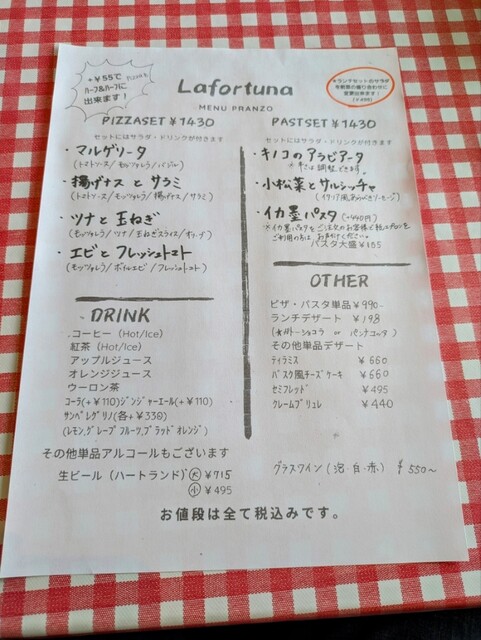 +¥55で
ハーフ&ハーフに
出来ます!
Lafortuna
MENU PRANZO
*ランチセットのサラダ
を前菜の盛り合わせに
変更出来ます!
PIZZASET ¥1430
セットにはサラダ・ドリンクが付きます
・マルゲリータ
(トマトソース/モッツァレラ/バジル)
・揚げナスとサラミ
(トマトソース/モッツァレラ/揚げナス/サラミ)
・ツナと玉ねぎ
(モッツァレラ/ツナ/玉ねぎスライス/オリーブ)
・エビとフレッシュトマト
(モッツァレラ/ボイルエビ/フレッシュトマト)
DRINK
.コーヒー (Hot/Ice)
紅茶 (Hot/Ice)
アップルジュース
オレンジジュース
ウーロン茶
コーラ(+¥110)ジンジャーエール(+¥110)
サンペレグリノ(各+¥330)
(レモン,グレープフルーツ,ブラッドオレンジ)
その他単品アルコールもございます
生ビール (ハートランド) 大 ¥715
小 ¥495
PASTSET ¥1430
セットにはサラダ・ドリンクが付きます
・キノコのアラビアータ
*辛さ調整できます。
・小松菜とサルシッチャ
(イタリア風あらびきソーセージ)
・イカ墨パスタ (+440円)
*イカ墨パスタをご注文のお客様で紙エプロンを
ご利用の方はお声がけください。
パスタ大盛¥165
OTHER
ピザ・パスタ単品¥990-
ランチデザート ¥198
(ガトーショコラ or パンナコッタ)
その他単品デザート
ティラミス ¥660
バスク風チーズケーキ ¥660
セミフレッド ¥495
クレームブリュレ ¥440
グラスワイン (泡・白・赤) ¥550~
お値段は全て税込みです。